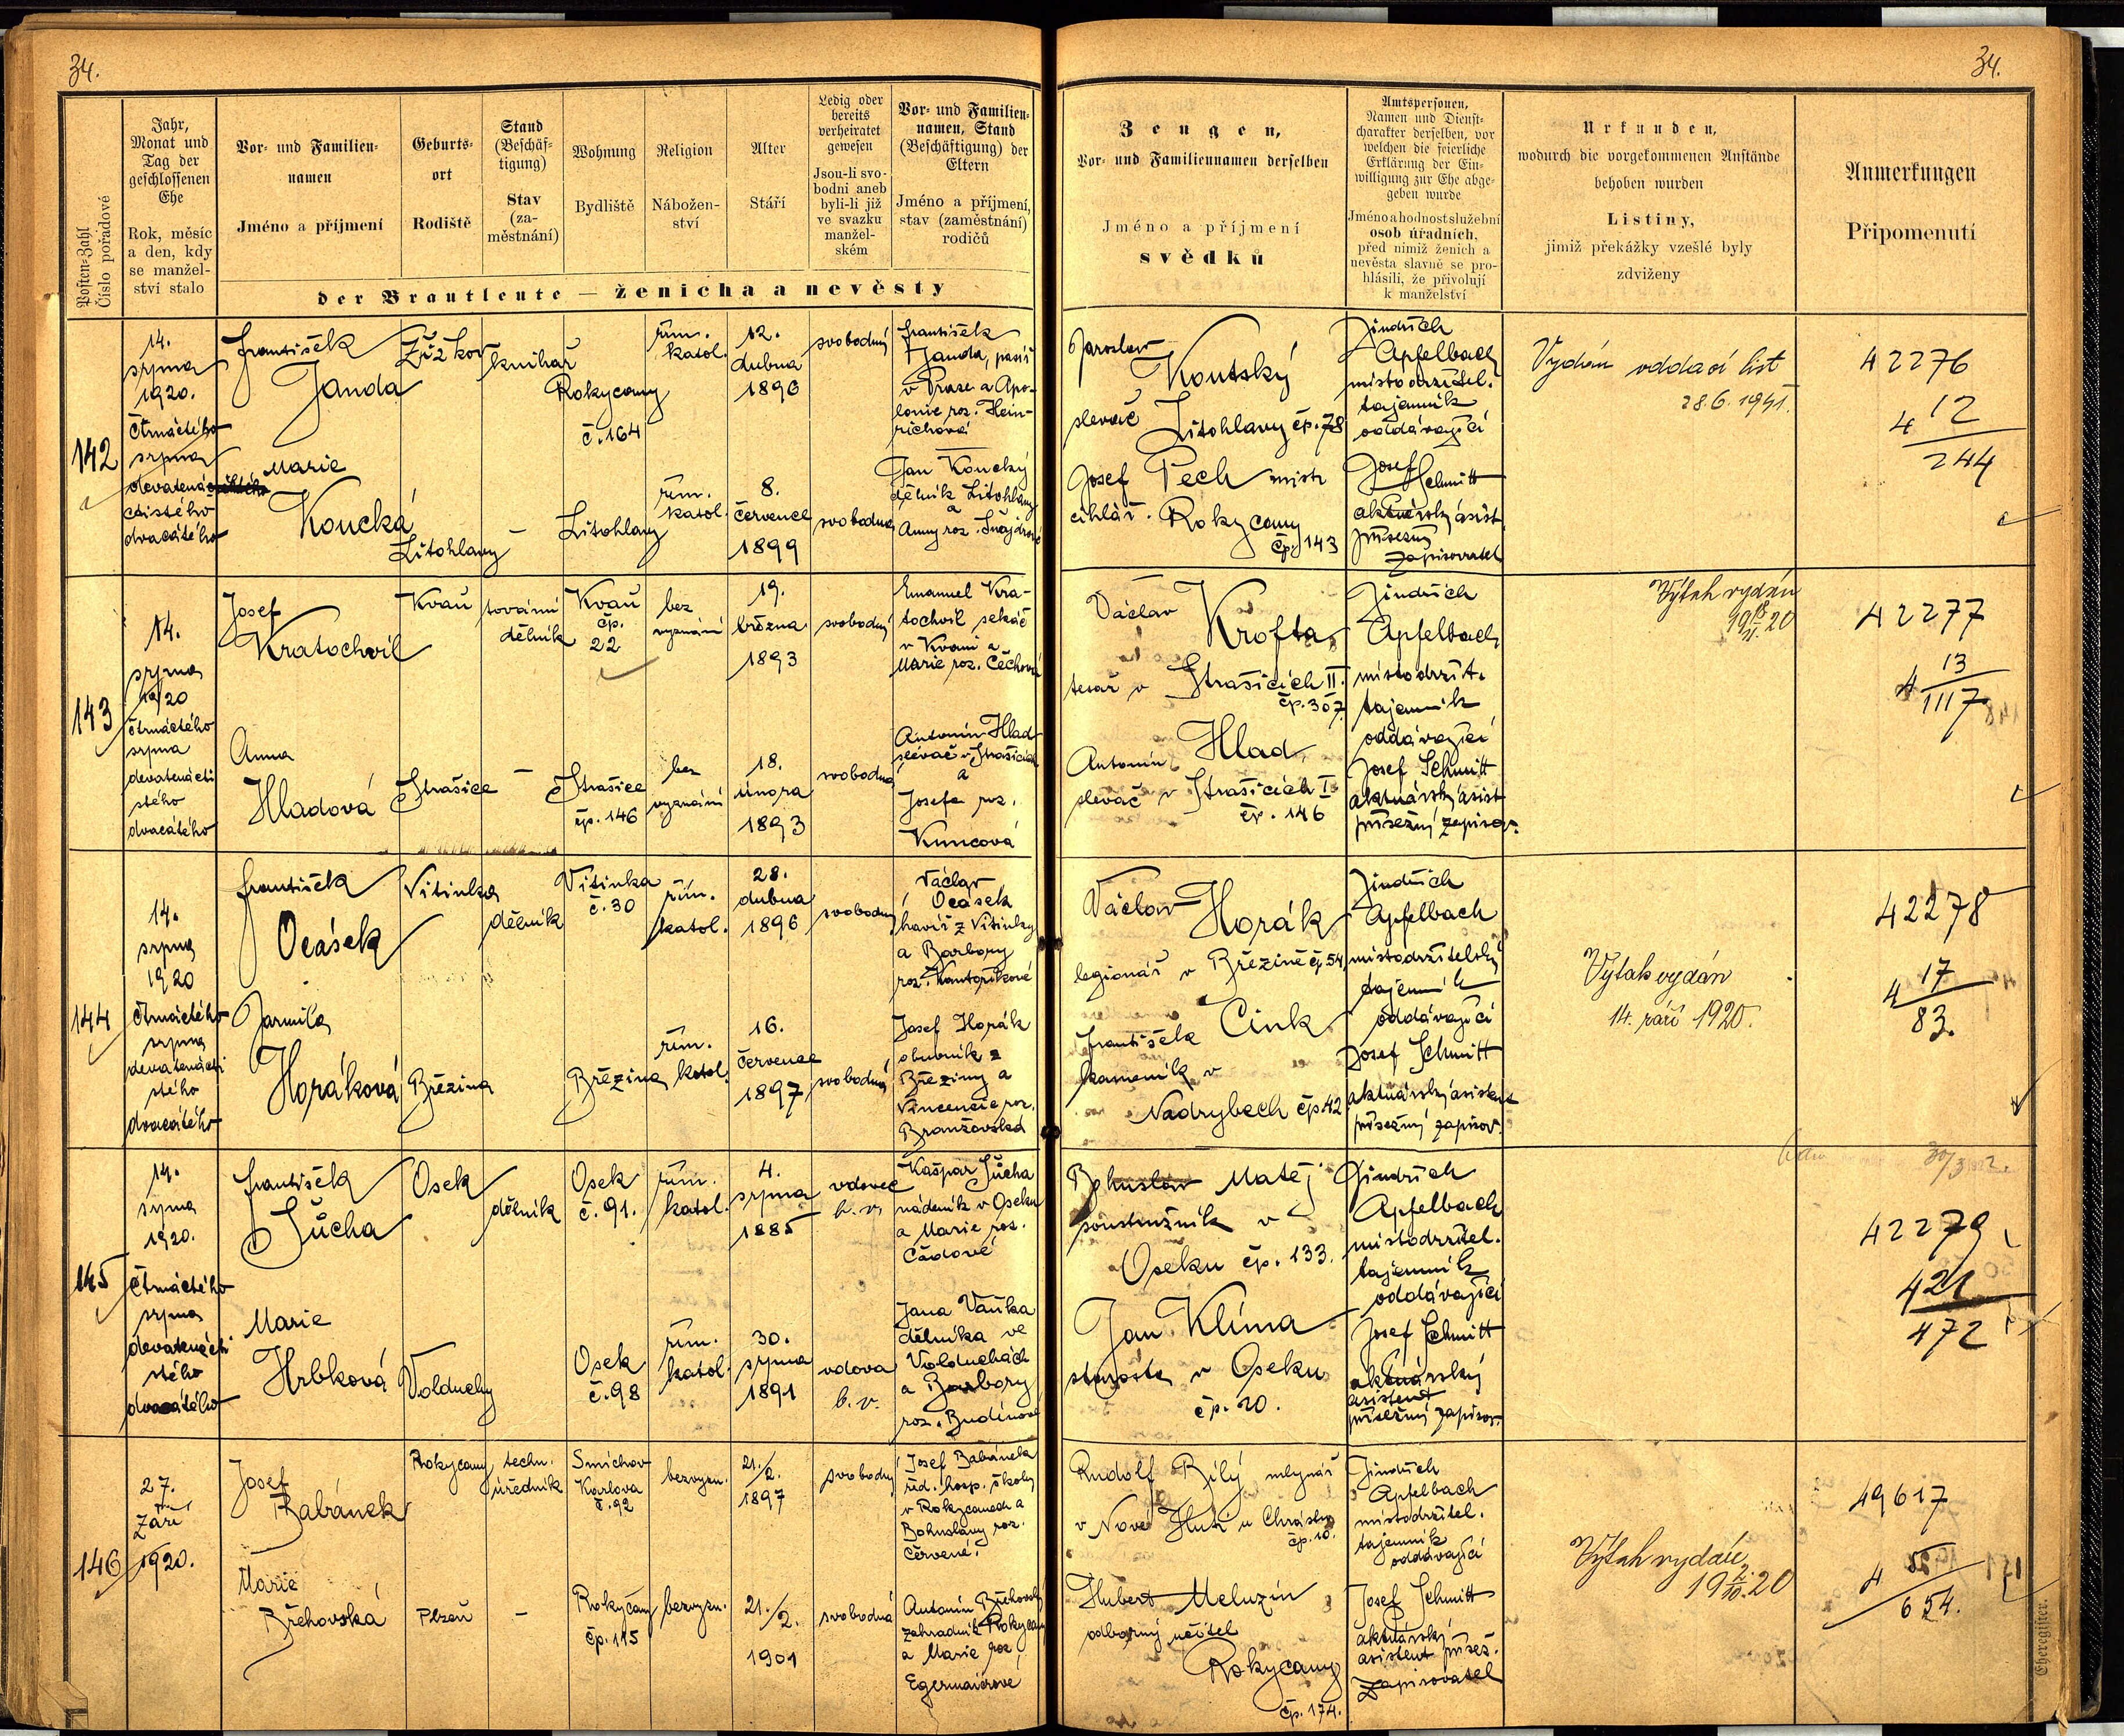 34.
34.
Posten-Zahl
Číslo pořadové
Jahr,
Monat und
Tag der
geschlossenen
Ehe
Rok, měsíc
a den, kdy
se manžel-
ství stalo
Vor- und Familien-
namen
Jméno a příjmení
Geburts-
ort
Rodiště
Stand
(Beschäf-
tigung)
Stav
(za-
městnání)
Wohnung
Bydliště
Religion
Nábožen-
ství
Alter
Stáří
Ledig oder
bereits
verheiratet
gewesen
Jsou-li svo-
bodni aneb
byli-li již
ve svazku
manžel-
ském
Vor- und Familien-
namen, Stand
(Beschäftigung) der
Eltern
Jméno a příjmení,
stav (zaměstnání)
rodičů
der Brautleute — ženicha a nevěsty
Zeugen,
Vor- und Familiennamen derselben
Jméno a příjmení
svědků
Amtspersonen,
Namen und Dienst-
charakter derselben, vor
welchen die feierliche
Erklärung der Ein-
willigung zur Ehe abge-
geben wurde
Jméno a hodnost služební
osob úřadních,
před nimiž ženich a
nevěsta slavně se pro-
hlásili, že přivolují
k manželství
Urkunden,
wodurch die vorgekommenen Anstände
behoben wurden
Listiny,
jimiž překážky vzešlé byly
zdviženy
Anmerkungen
Připomenutí
142
14.
srpna
1920.
čtrnáctého
srpna
devatenáct
ctistého
dvacátého
František
Janda
Žižkov
knihař
Rokycany
č. 164
řím.
katol.
12.
dubna
1896
svobodný
František
Janda,
v Praze a Apo-
lonie roz. Hein-
richová
Marie
Koucká
Litohlavy
–
Litohlavy
řím.
katol.
8.
července
1899
svobodna
Jan Koucký
dělník Litohlavy
a
Anny roz. Šnajdrové
Jaroslav
Koutský
slevač Litohlavy čp. 78
Josef Pech mistr
cihlář. Rokycany
čp. 143
Jindřich
Apfelbach
místodržitel.
tajemník
oddávající
Josef
Schmitt
aktuárský asist.
přísežný
zapisovatel
Vydán oddací list
28.6.1941.
42276
4 12
244
143
14.
srpna
1920
čtrnáctého
srpna
devatenácti
stého
dvacátého
Josef
Kratochvíl
Kvaň
tovární
dělník
Kvaň
čp.
22
bez
vyznání
19.
března
1893
svobodný
Emanuel Kra-
tochvíl sekáč
v Kvani a
Marie roz. Čechová
Anna
Hladová
Strašice
–
Strašice
čp. 146
bez
vyznání
18.
února
1893
svobodna
Antonín Hlad
slévač v Strašicích
a
Josefa roz.
Kuncová
Václav Krofta
tesař v Strašicích II.
čp. 307.
Antonín Hlad
slevač v Strašicích I
čp. 146
Jindřich
Apfelbach
místodržit.
tajemník
oddávající
Josef Schmitt
aktuárský asist
přísežný zapisov.
Výtah vydán
42277
4 13
1117
144
14.
srpna
1920
čtrnáctého
srpna
devatenácti
stého
dvacátého
František
Ocásek
Vitinka
dělník
Vitinka
č. 30
řím.
katol.
28.
dubna
1896
svobodný
Václav
Ocásek
havíř z Vitinky
a Barbory
roz. Kantoříkové
Jarmila
Horáková
Březina
Březina
řím.
katol.
16.
července
1897
svobodná
Josef Horák
obuvník z
Březiny a
Vincencie roz.
Branžovská
Václav Horák
legionář v Březině čp 54
František Cink
kameník v
Nadrybech čp 42
Jindřich
Apfelbach
místodržitelský
tajemník
oddávající
Josef Schmitt
aktuárský asistent
přísežný zapisov.
Výtah vydán
14. září 1920.
42278
4 17
83.
145
14.
srpna
1920.
čtrnáctého
srpna
devatenácti
stého
dvacátého
František
Šůcha
Osek
dělník
Osek
č. 91.
řím.
katol.
4.
srpna
1885
vdovec
b. v.
Kašpar Šůcha
nádeník v Oseku
a Marie roz.
Čadové
Marie
Hrbková
Volduchy
Osek
č. 98
řím.
katol.
30.
srpna
1891
vdova
b. v.
Jana Vaňka
dělníka ve
Volduchách
a Barbory
roz. Budínové
Bohuslav Matěj
soustružník v
Oseku čp. 133.
Jan Klíma
starosta v Oseku
čp. 20.
Jindřich
Apfelbach
místodržitel.
tajemník
oddávající
Josef Schmitt
aktuárský
asistent
přísežný zapisov.
42279
421
472
146
27.
Září
1920.
Josef
Babánek
Rokycany
techn.
úředník
Smíchov
Karlova
č. 92
bezvyzn.
21./2.
1897
svobodný
Josef Babánek
řed. hosp. školy
v Rokycanech a
Bohuslavy roz.
Červené.
Marie
Břehovská
Plzeň
–
Rokycany
čp. 115
bezvyzn.
21./2.
1901
svobodná
Antonín Břehovský
zahradník Rokycany
a Marie roz.
Egermaierové
Rudolf Bílý mlynář
v Nové Huti u Chrástu
čp. 10.
Hubert Meluzín
odborný učitel
Rokycany
čp. 174.
Jindřich
Apfelbach
místodržitel.
tajemník
oddávající
Josef Schmitt
aktuárský
asistent přísež.
zapisovatel
Výtah vydán
49617
4
654.
Eheregister.